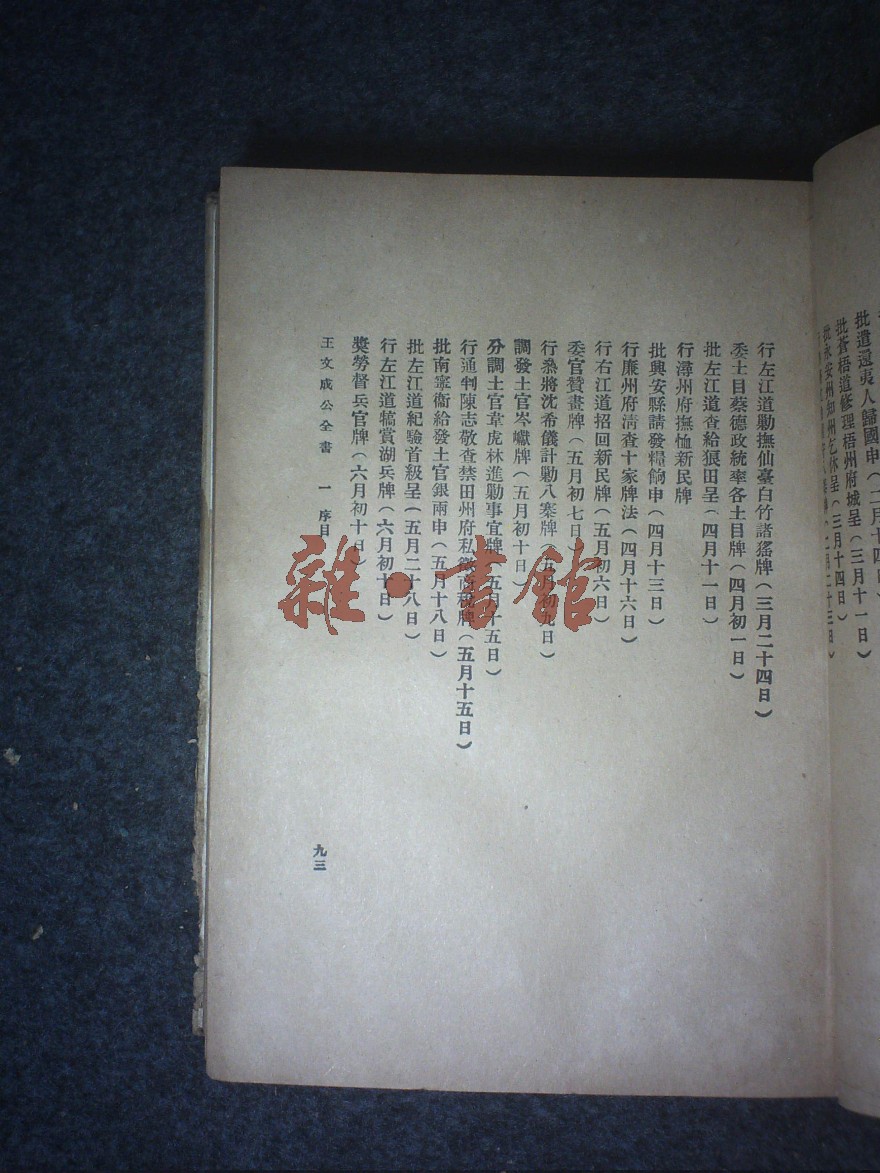 批遣還夷人歸國申（二月十四日）
批蒼梧道修理梧州府城呈（三月十一日）
批永安州知州乞休呈（三月十四日）
行左江道勦撫仙臺白竹諸猺牌（三月二十四日）
委土目蔡德政統率各土目牌（四月初一日）
批左江道查給狼田呈（四月十一日）
行潯州府撫恤新民牌
批興安縣請發糧餉申（四月十三日）
行廉州府淸查十家牌法（四月十六日）
行右江道招回新民牌（五月初六日）
委官贊畫牌（五月初七日）
行叅將沈希儀計勦八寨牌（五月初九日）
調發土官岑瓛牌（五月初十日）
分調土官韋虎林進勦事宜牌（五月十五日）
行通判陳志敬查禁田州府私徵商稅牌（五月十五日）
批南寧衞給發土官銀兩申（五月十八日）
批左江道紀驗首級呈（五月二十八日）
行左江道犒賞湖兵牌（六月初十日）
獎勞督兵官牌（六月初十日）
王文成公全書　一　序目
九三
雜·書館